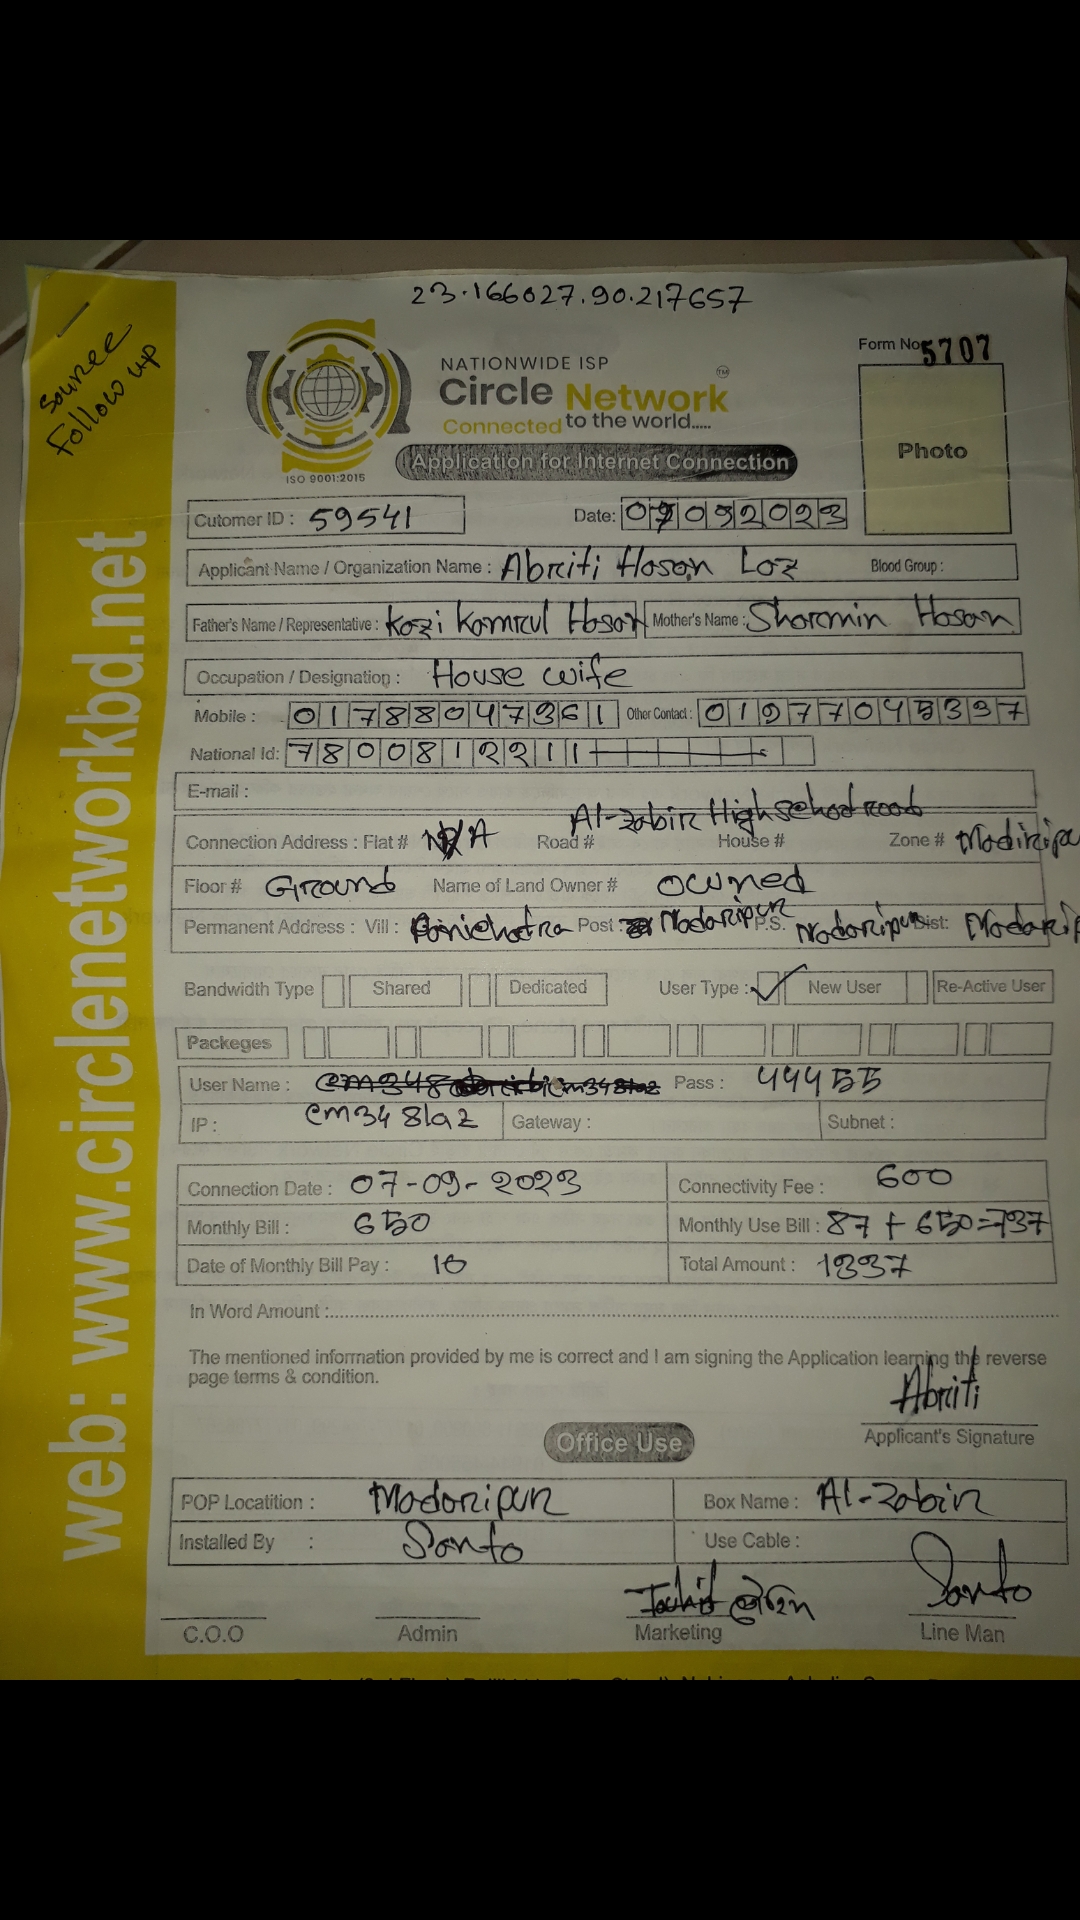 23.166027.90.217657
source
Follow up
Form No 5707
NATIONWIDE ISP
Circle Network TM
Connected to the world.....
ISO 9001:2015
Application for Internet Connection
Photo
Cutomer ID : 59541
Date: 07092023
Applicant Name / Organization Name : Abriti Hosan Loz
Blood Group :
Father's Name / Representative : Kazi Kamrul Hosan
Mother's Name : Sharmin Hosan
Occupation / Designation : House wife
Mobile : 01788047361
Other Contact : 01977045397
National Id: 7800812211
E-mail :
Connection Address : Flat # N/A Road # Al-Zabir High school road House # Zone # Madiripu
Floor # Ground Name of Land Owner # owned
Permanent Address : Vill : Post : Madaripur P.S. Madaripur Dist: Madarip
Bandwidth Type Shared Dedicated User Type : New User Re-Active User
Packeges
User Name : Pass : 444555
IP : cm348laz Gateway : Subnet :
Connection Date : 07-09-2023
Connectivity Fee : 600
Monthly Bill : 650
Monthly Use Bill : 87 + 650=737
Date of Monthly Bill Pay : 10
Total Amount : 1337
In Word Amount :
The mentioned information provided by me is correct and I am signing the Application learning the reverse
page terms & condition.
Abriti
Applicant's Signature
Office Use
POP Locatition : Madaripur
Box Name : Al-Zabir
Installed By : Santo
Use Cable :
Santo
C.O.O
Admin
Marketing
Line Man
web: www.circlenetworkbd.net